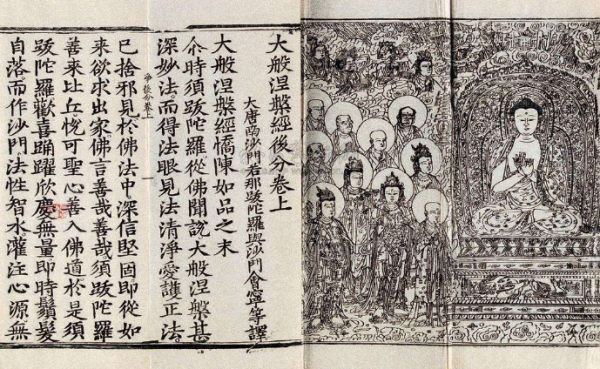 大般涅槃經後分卷上
大唐沙門若那跋陀羅與沙門會寧等譯
大般涅槃經憍陳如品之末
尒時須跋陀羅從佛聞說大般涅槃甚
深妙法而得法眼見法清淨愛護正法
後分卷上
已捨邪見於佛法中深信堅固即從如
來欲求出家佛言善哉善哉須跋陀羅
善來比丘悅可聖心善入佛道於是須
跋陀羅歡喜踊躍欣慶無量即時鬚髮
自落而作沙門法性智水灌注心源無